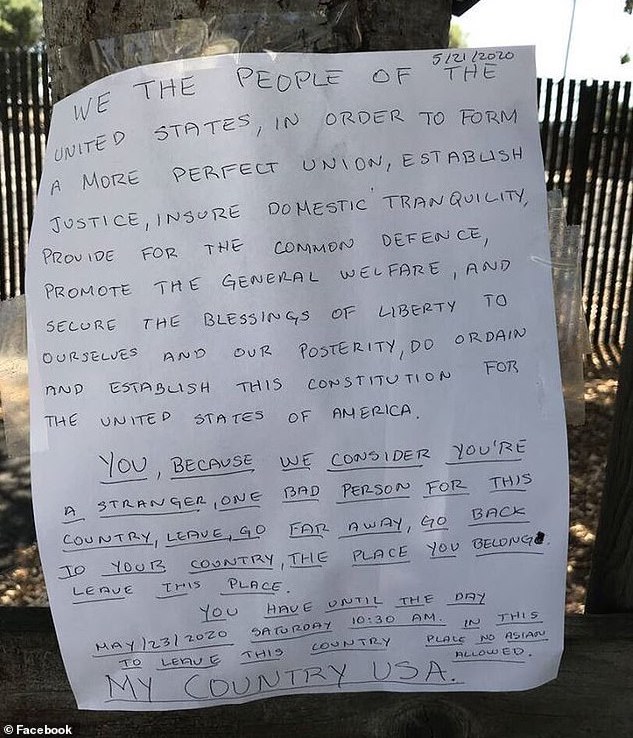 5/21/2020
WE THE PEOPLE OF THE
UNITED STATES, IN ORDER TO FORM
A MORE PERFECT UNION, ESTABLISH
JUSTICE, INSURE DOMESTIC TRANQUILITY,
PROVIDE FOR THE COMMON DEFENCE,
PROMOTE THE GENERAL WELFARE, AND
SECURE THE BLESSINGS OF LIBERTY TO
OURSELVES AND OUR POSTERITY, DO ORDAIN
AND ESTABLISH THIS CONSTITUTION FOR
THE UNITED STATES OF AMERICA.
YOU, BECAUSE WE CONSIDER YOU'RE
A STRANGER, ONE BAD PERSON FOR THIS
COUNTRY, LEAVE, GO FAR AWAY, GO BACK
TO YOUR COUNTRY, THE PLACE YOU BELONG.
LEAVE THIS PLACE.
YOU HAVE UNTIL THE DAY
MAY/23/2020 SATURDAY 10:30 AM. IN THIS
TO LEAVE THIS COUNTRY PLACE NO ASIAN
ALLOWED.
MY COUNTRY USA.
© Facebook